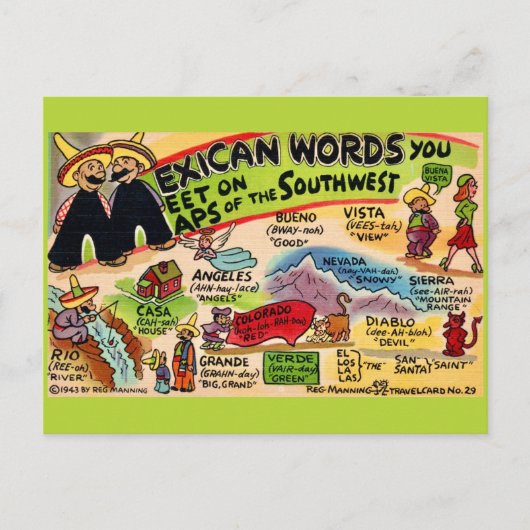 MEXICAN WORDS YOU
MEET ON
MAPS OF THE SOUTHWEST
BUENO
(BWAY-noh)
"GOOD"
VISTA
(VEES-tah)
"VIEW"
BUENA
VISTA
ANGELES
(AHN-hay-lace)
"ANGELS"
NEVADA
(nay-VAH-dah)
"SNOWY"
SIERRA
(see-AIR-rah)
"MOUNTAIN
RANGE"
CASA
(CAH-sah)
"HOUSE"
COLORADO
(koh-loh-RAH-doh)
"RED"
DIABLO
(dee-AH-bloh)
"DEVIL"
RIO
(REE-oh)
"RIVER"
GRANDE
(GRAHN-day)
"BIG, GRAND"
VERDE
(VAIR-day)
"GREEN"
EL
LOS
LA
LAS
"THE"
SAN
SANTA
"SAINT"
©1943 BY REG MANNING
REG MANNING TRAVELCARD No. 29